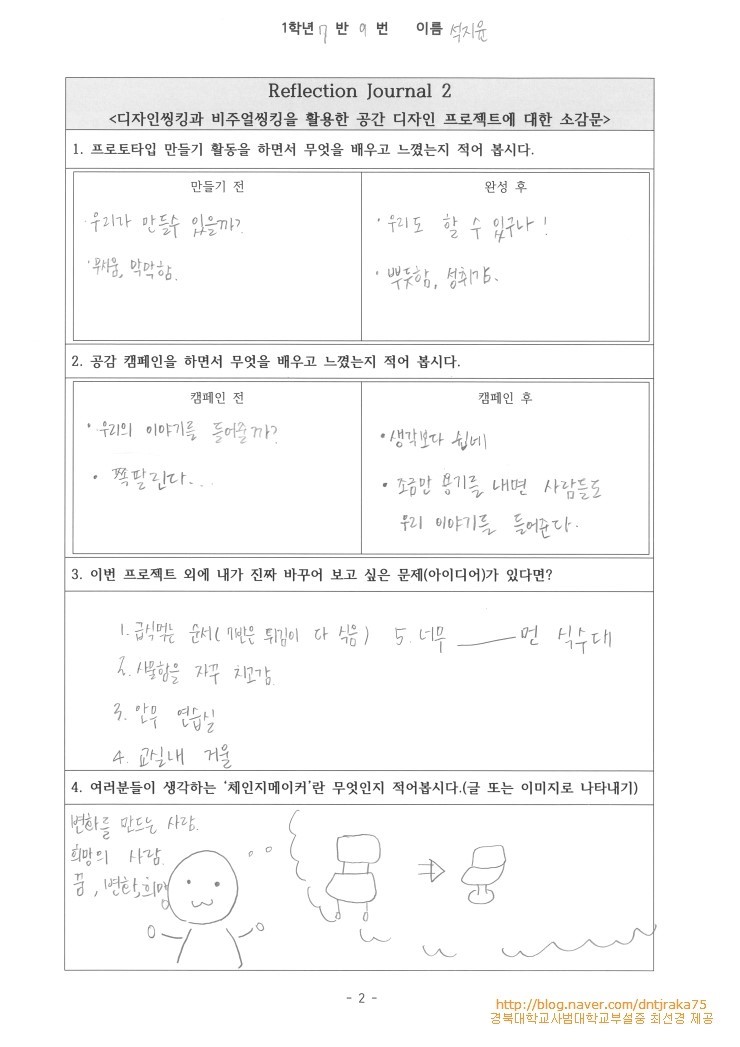 1학년 7 반 9 번 이름 석지윤
Reflection Journal 2
<디자인씽킹과 비주얼씽킹을 활용한 공간 디자인 프로젝트에 대한 소감문>
1. 프로토타입 만들기 활동을 하면서 무엇을 배우고 느꼈는지 적어 봅시다.
만들기 전
· 우리가 만들수 있을까?
· 무서움, 막막함.
완성 후
· 우리도 할 수 있구나!
· 뿌듯함, 성취감.
2. 공감 캠페인을 하면서 무엇을 배우고 느꼈는지 적어 봅시다.
캠페인 전
· 우리의 이야기를 들어줄까?
· 쪽팔린다...
캠페인 후
· 생각보다 쉽네
· 조금만 용기를 내면 사람들도
우리 이야기를 들어준다.
3. 이번 프로젝트 외에 내가 진짜 바꾸어 보고 싶은 문제(아이디어)가 있다면?
1. 급식먹는 순서 (7반은 튀김이 다 식음)
2. 사물함을 자꾸 치고감.
3. 안무 연습실
4. 교실내 거울
5. 너무 ——— 먼 식수대
4. 여러분들이 생각하는 '체인지메이커'란 무엇인지 적어봅시다.(글 또는 이미지로 나타내기)
변화를 만드는 사람.
희망의 사람.
꿈, 변화, 희망
- 2 -
http://blog.naver.com/dntjraka75
경북대학교사범대학교부설중 최선경 제공